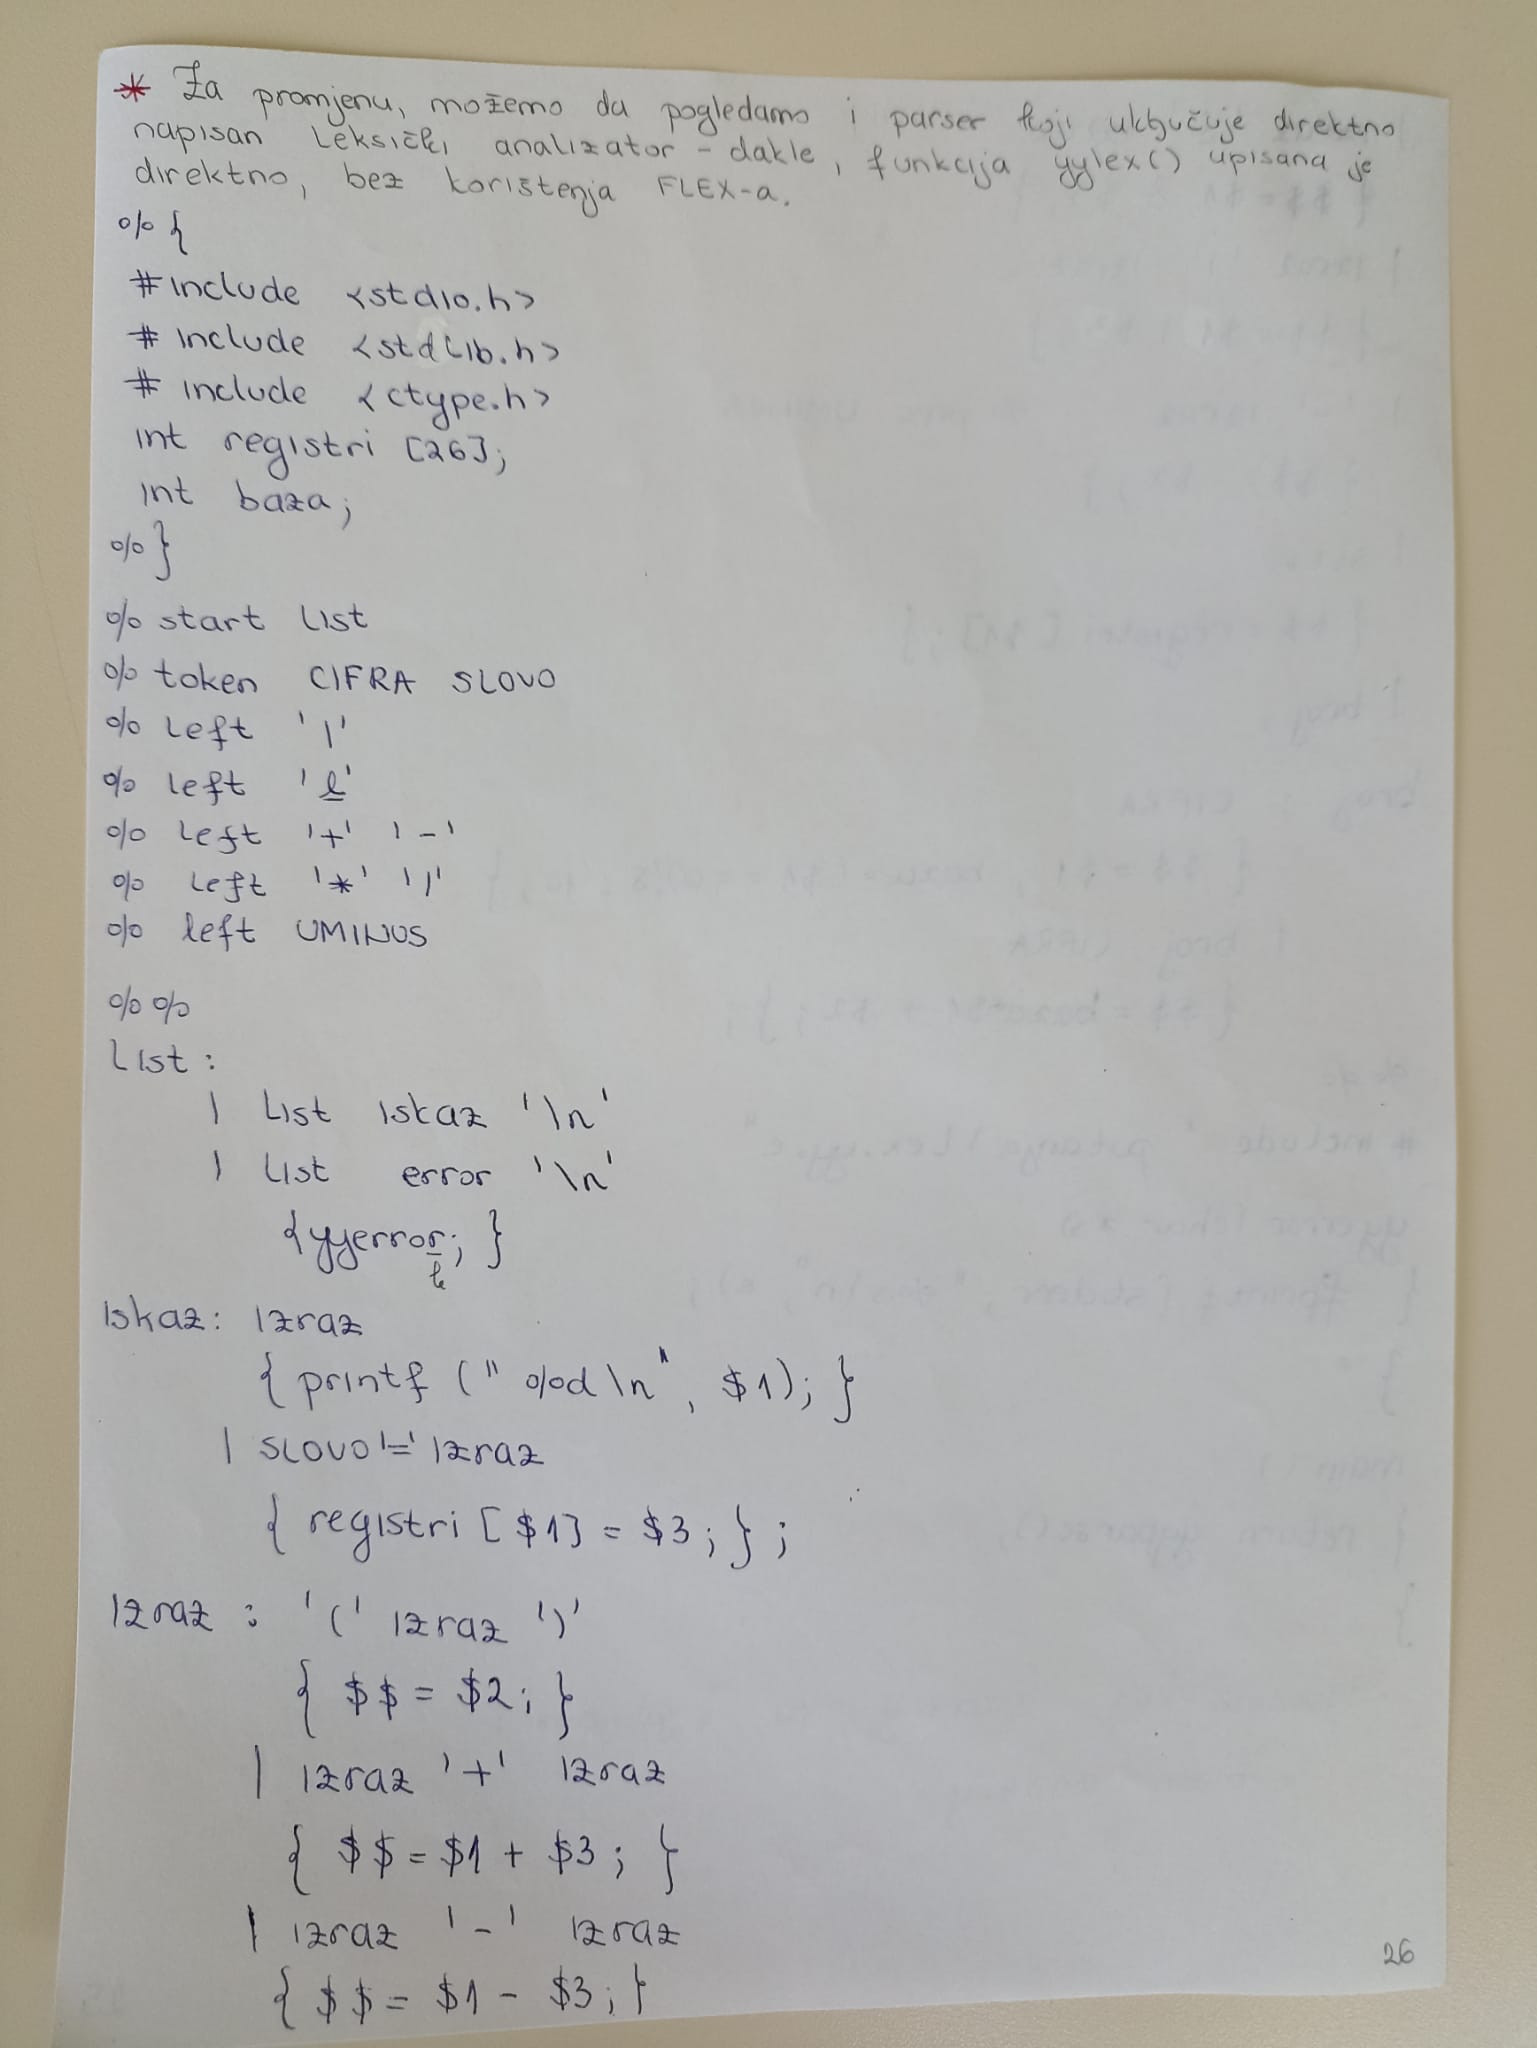 * Za promjenu, možemo da pogledamo i parser koji uključuje direktno
napisan leksički analizator - dakle, funkcija yylex() upisana je
direktno, bez korištenja FLEX-a.
%{
#include <stdio.h>
# include <stdlib.h>
# include <ctype.h>
int registri [26];
int baza;
%}
% start list
% token CIFRA SLOVO
% left '|'
% left '&'
% left '+' '-'
% left '*' '/'
% left UMINUS
%%
list :
| list iskaz '\n'
| list error '\n'
{yyerror; }
k
iskaz: izraz
{ printf (" %d\n", $1); }
| SLOVO '=' izraz
{ registri [$1] = $3; } ;
izraz : '(' izraz ')'
{ $$ = $2; }
| izraz '+' izraz
{ $$ = $1 + $3 ; }
| izraz '-' izraz
{ $$ = $1 - $3; }
26